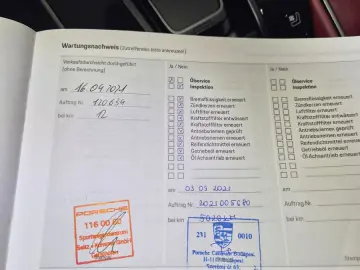 Wartungsnachweis (Zutreffendes bitte ankreuzen!)
Verkaufsbereitschaft durchgeführt
(ohne Berechnung)
am 16.04.2021
Auftrag Nr. 120654
bei km 12
PORSCHE
116 00 80
Sportwagenzentrum
Ja / Nein
Ölservice
Inspektion
Bremsflüssigkeit erneuert
Zündkerzen erneuert
Luftfilter erneuert
Kraftstofffilter entwässert
Kraftstofffilter erneuert
Antriebsriemen geprüft
Antriebsriemen erneuert
Reifendichtmittel erneuert
Getriebeöl erneuert
Öl Achsantrieb erneuert
am 03 05 2021
Auftrag Nr. 2021005680
bei km
231 0010
Porsche Centrum Budapest
Ja / Nein
Ölservice
Inspektion
Bremsflüssigkeit erneuert
Zündkerzen erneuert
Luftfilter erneuert
Kraftstofffilter entwässert
Kraftstofffilter erneuert
Antriebsriemen geprüft
Antriebsriemen erneuert
Reifendichtmittel erneuert
Getriebeöl erneuert
Öl Achsantrieb erneuert
am
Auftrag Nr.
bei km